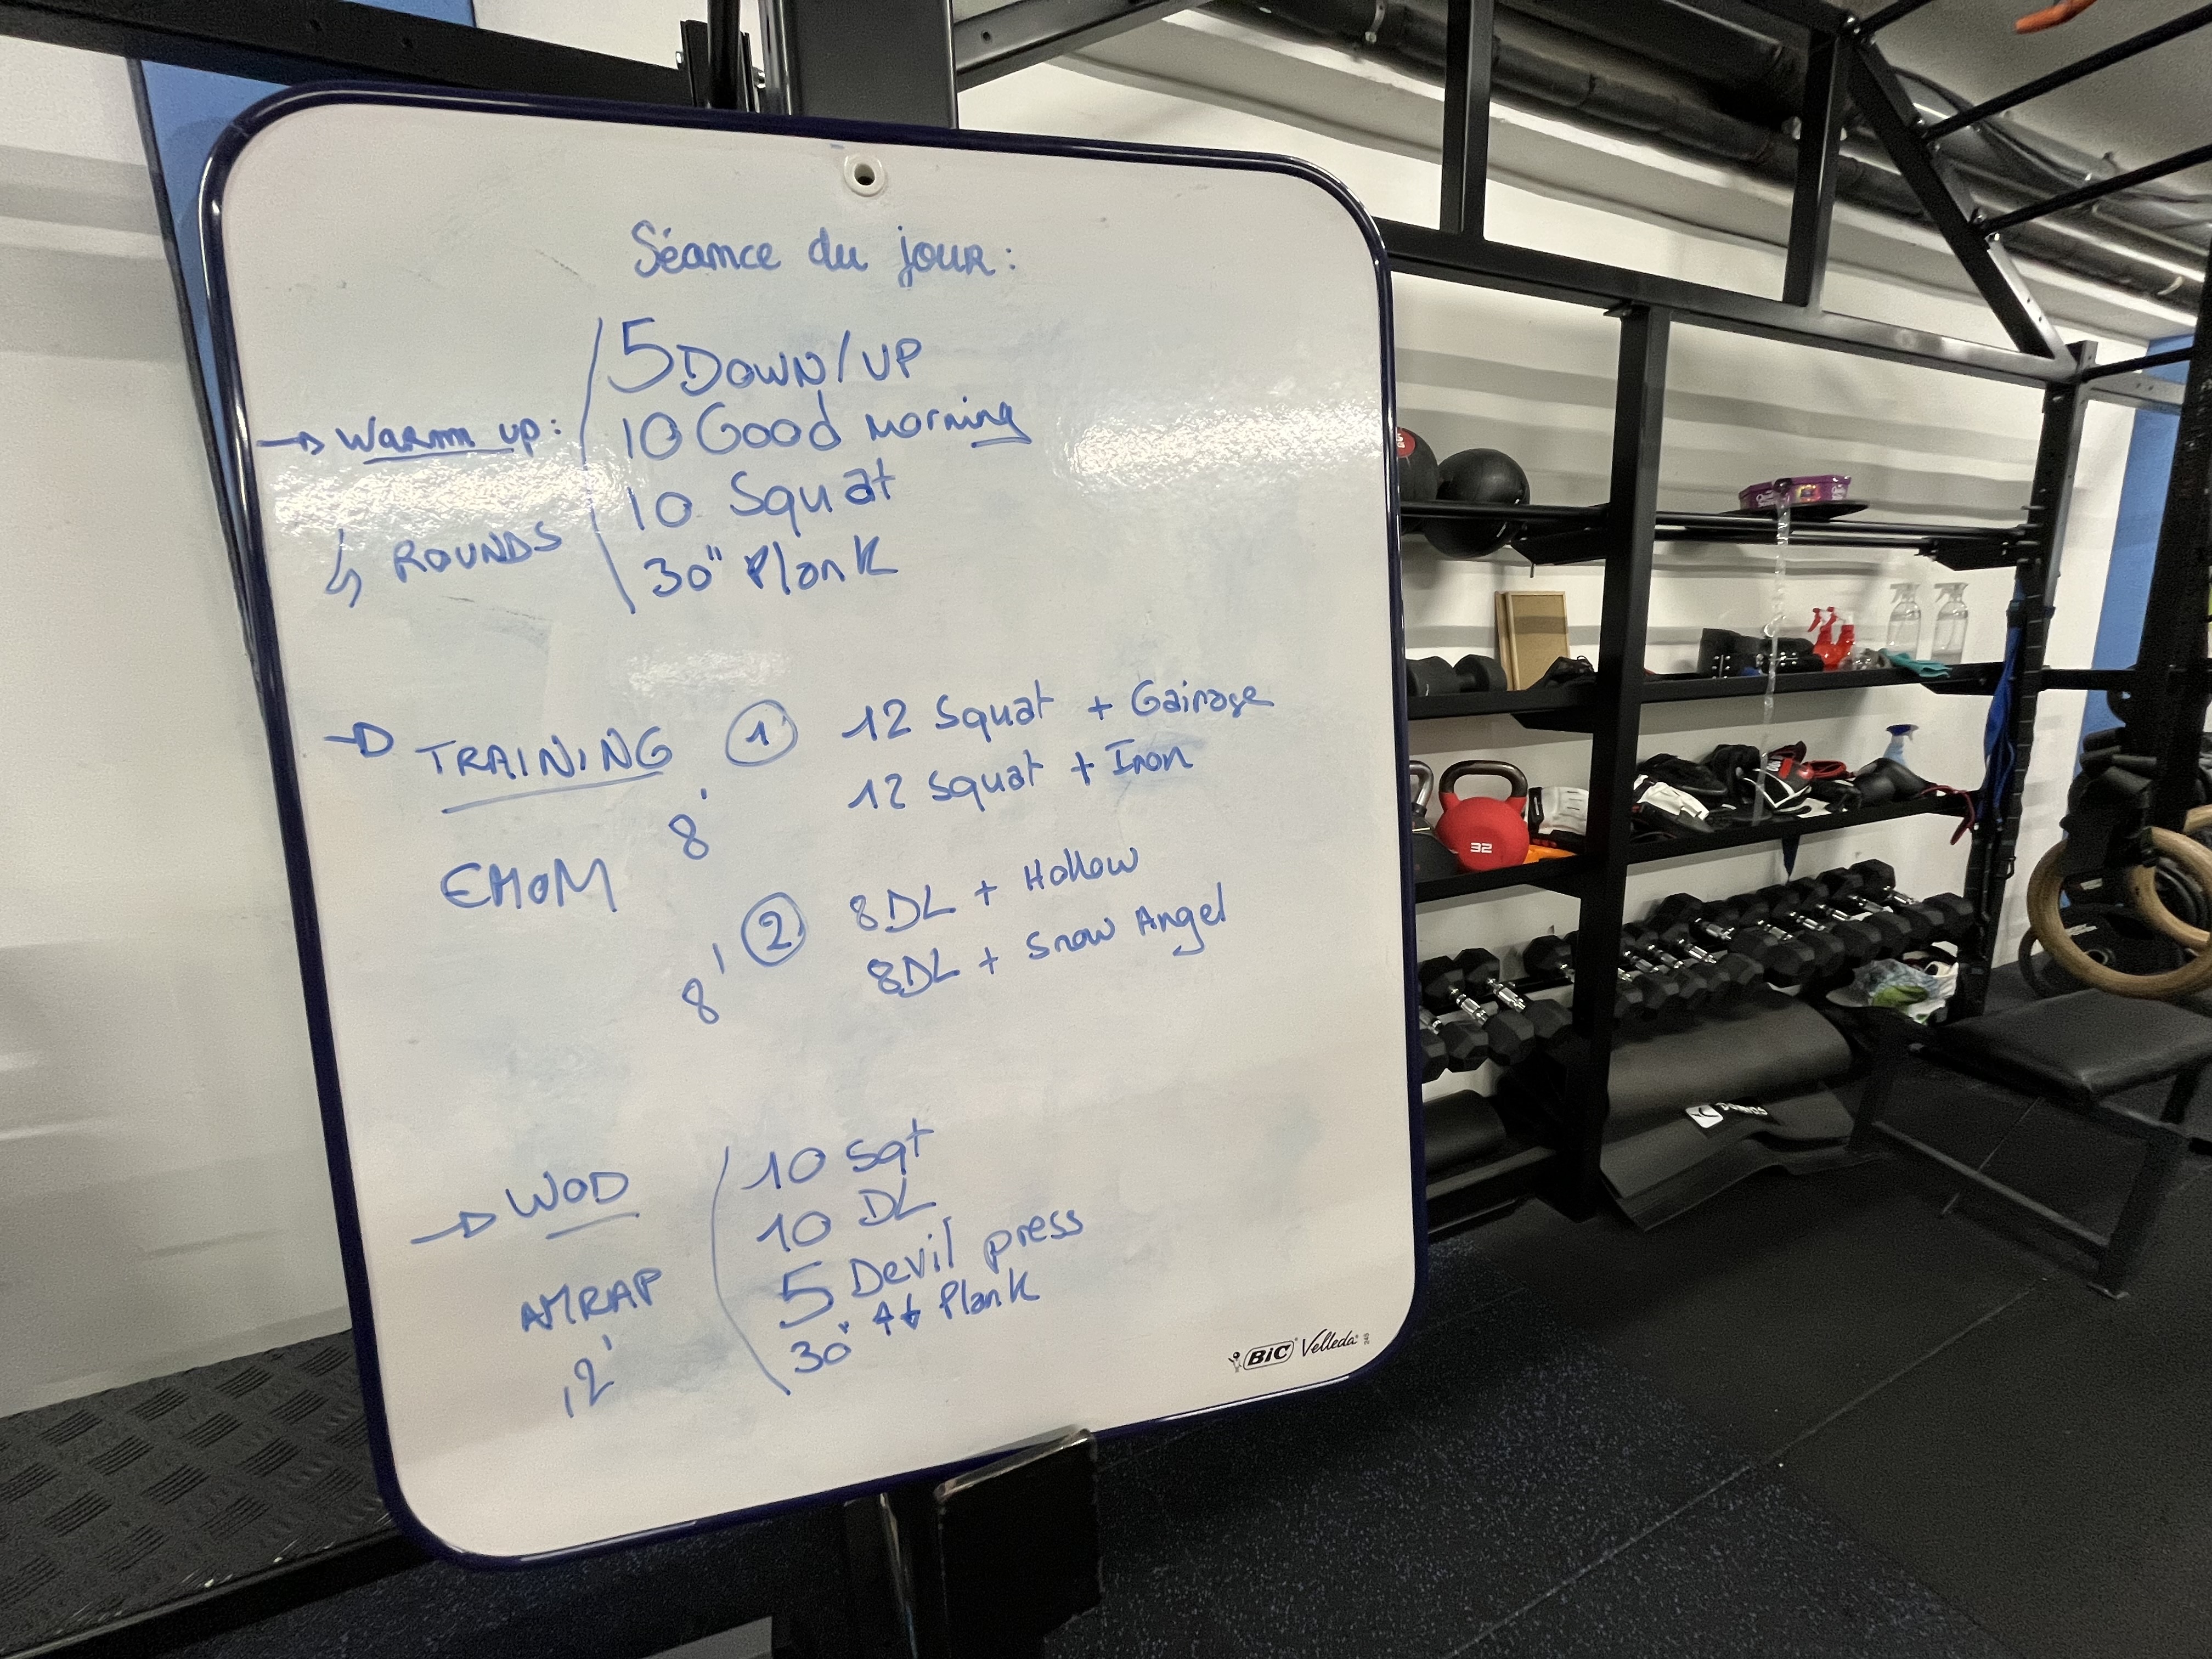 Séance du jour :
→ Warm up :
5 DOWN/UP
10 Good morning
10 Squat
30" Plank
↳ ROUNDS
→ TRAINING
EMOM
8' ① 12 Squat + Gainage
12 Squat + Iron
8' ② 8DL + Hollow
8DL + Snow Angel
→ WOD
AMRAP
12'
10 Sqt
10 DL
5 Devil press
30" ↑↓ Plank
BIC Velleda
32